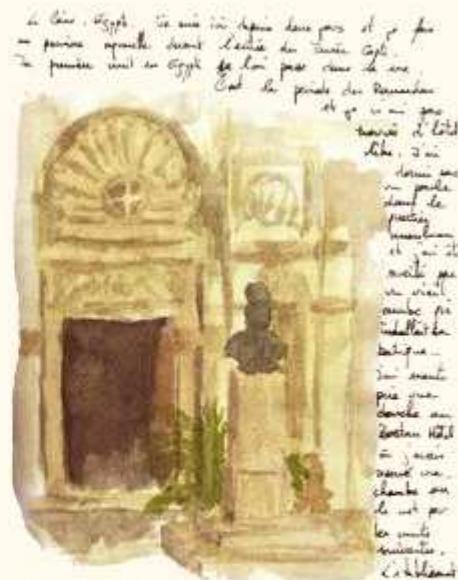 Le Caire, Egypte. Je suis ici depuis deux jours et je fais
ma première aquarelle devant l'entrée du Musée Copte.
Ma première nuit en Egypte je l'ai passé dans la rue.
C'est la période du Ramadan
et je n'ai pas
trouvé d'hôtel
libre. J'ai
dormi sous
un porche
dans le
quartier
musulman
et j'ai été
par
un vieil
arabe qui
sa
boutique.
J'ai ensuite
pris une
douche au
Hôtel
où j'avais
une
chambre
la nuit pour
les nuits
suivantes.